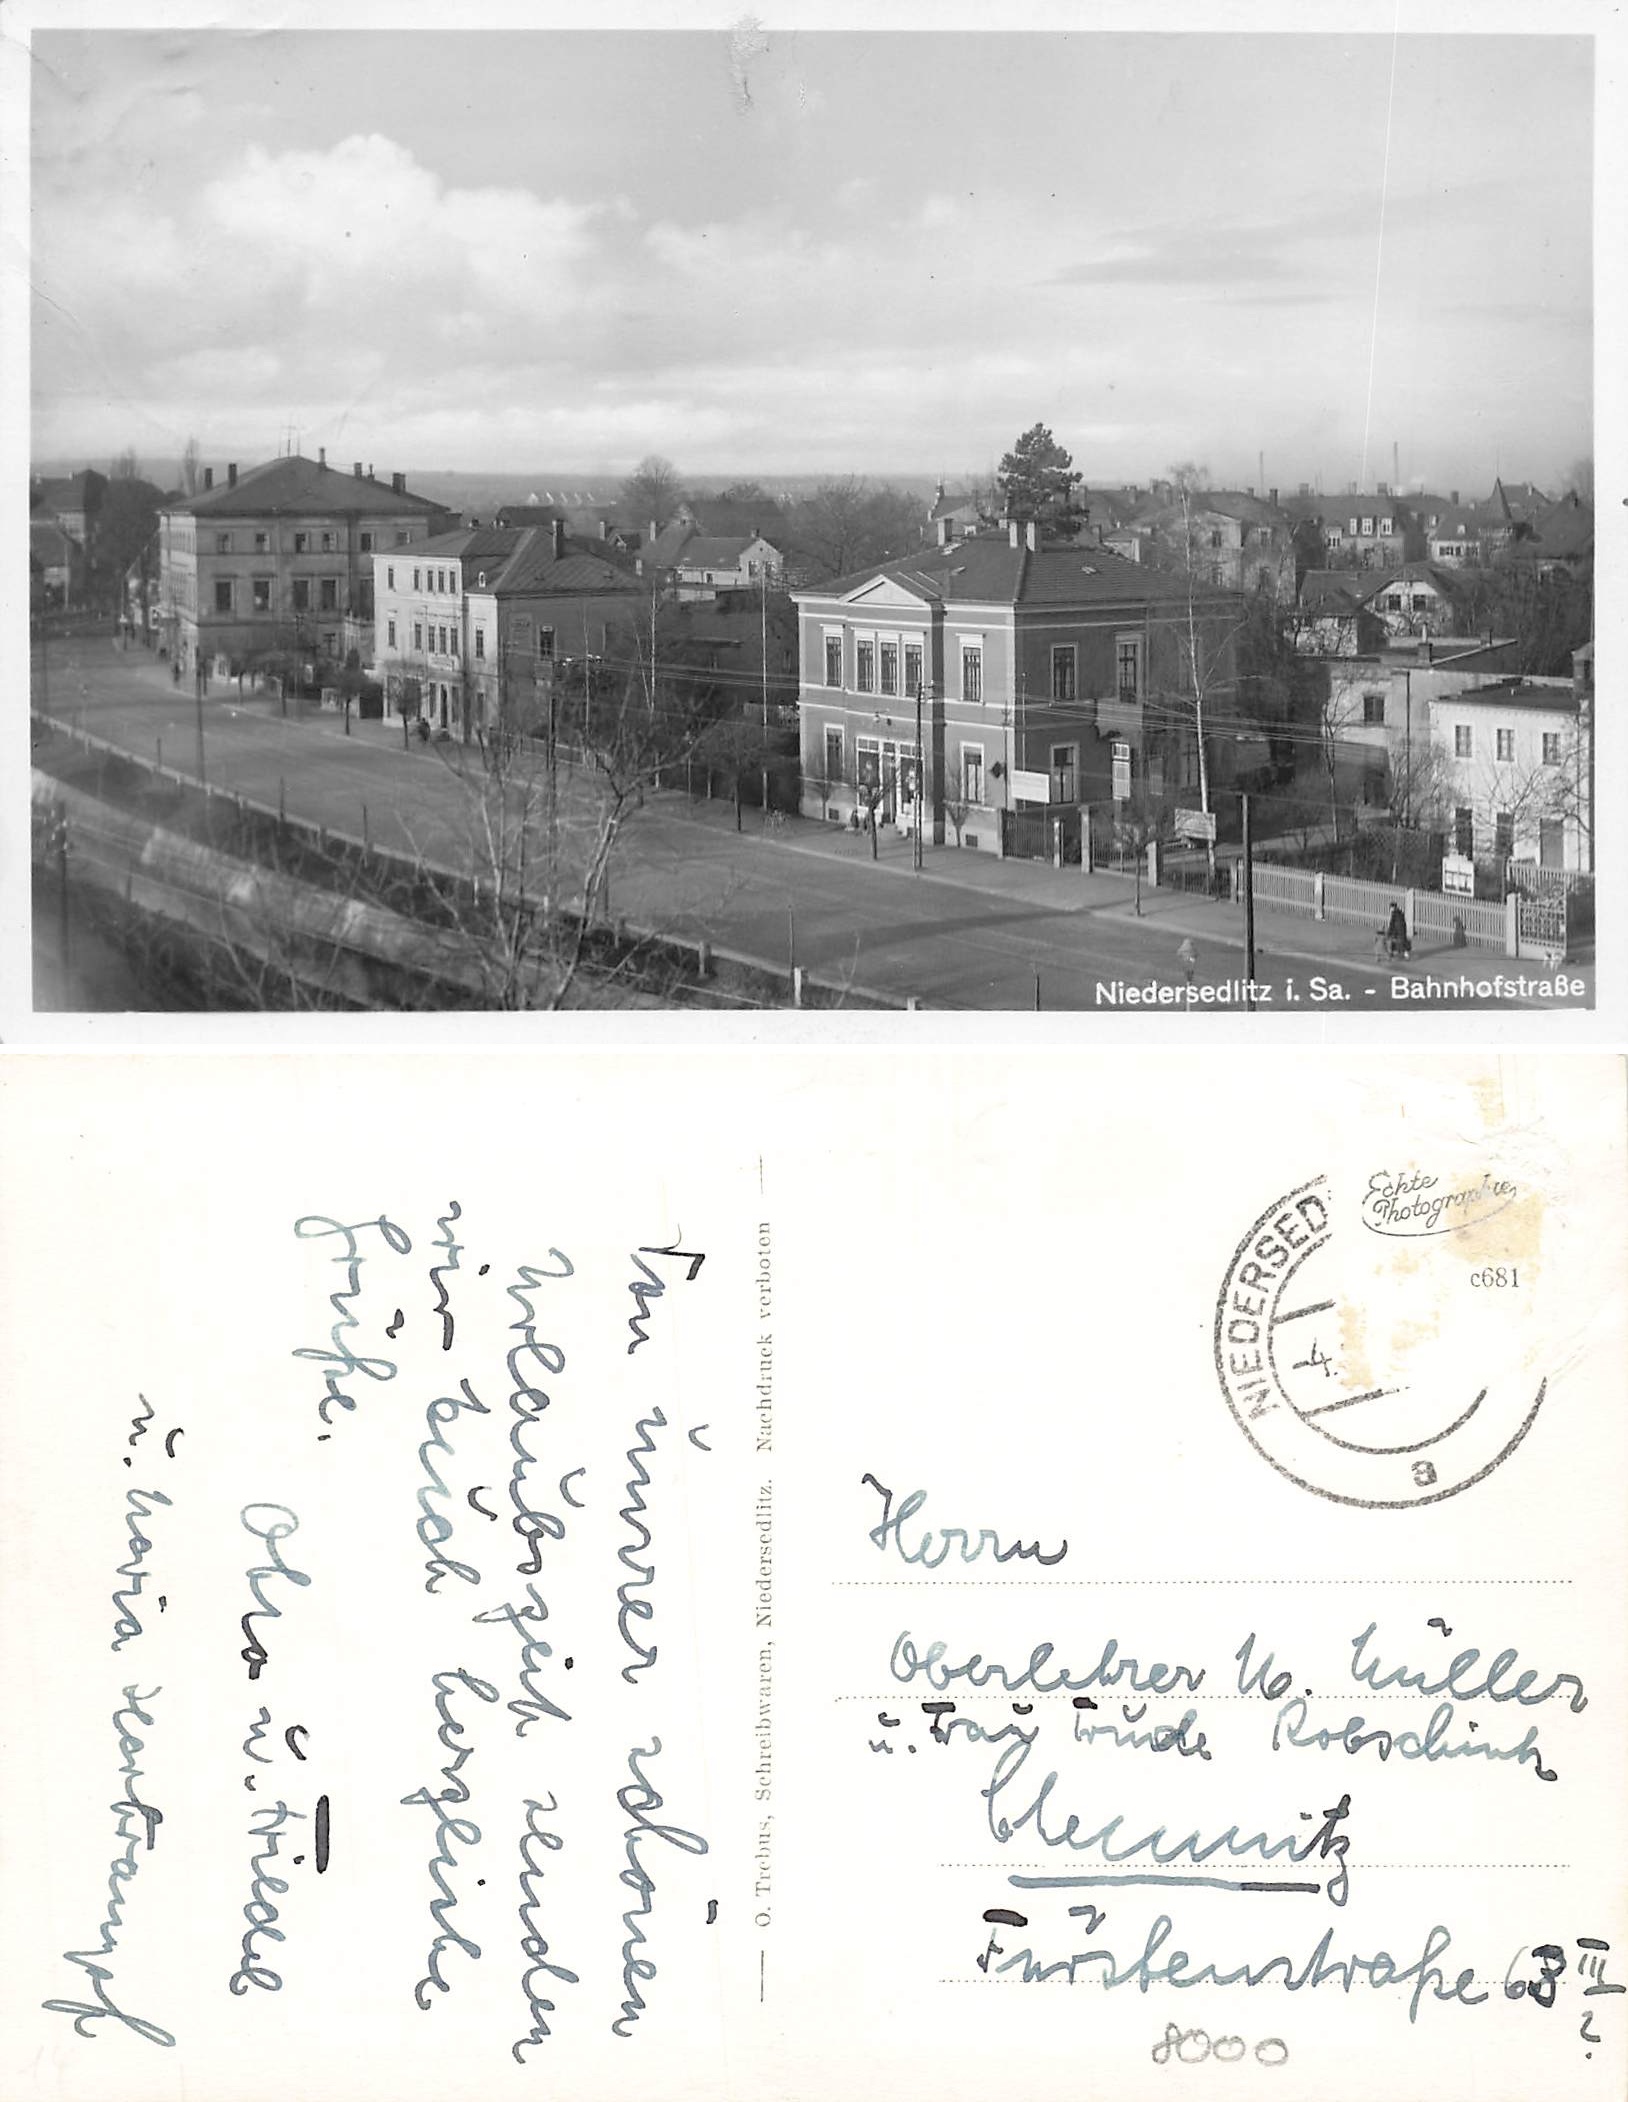 Niedersedlitz i. Sa. - Bahnhofstraße
Von unrer schönen
Urlaubszeit senden
wir Euch herzliche
Grüße.
Otto u. Friedel
u. Maria
O. Trebus, Schreibwaren, Niedersedlitz. Nachdruck verboten
Echte
Photographie
c681
NIEDERSED
-4.
a
Herrn
Oberlehrer M. Müller
u. Frau Trude
Chemnitz
Fürstenstraße 63 III
2.
8000